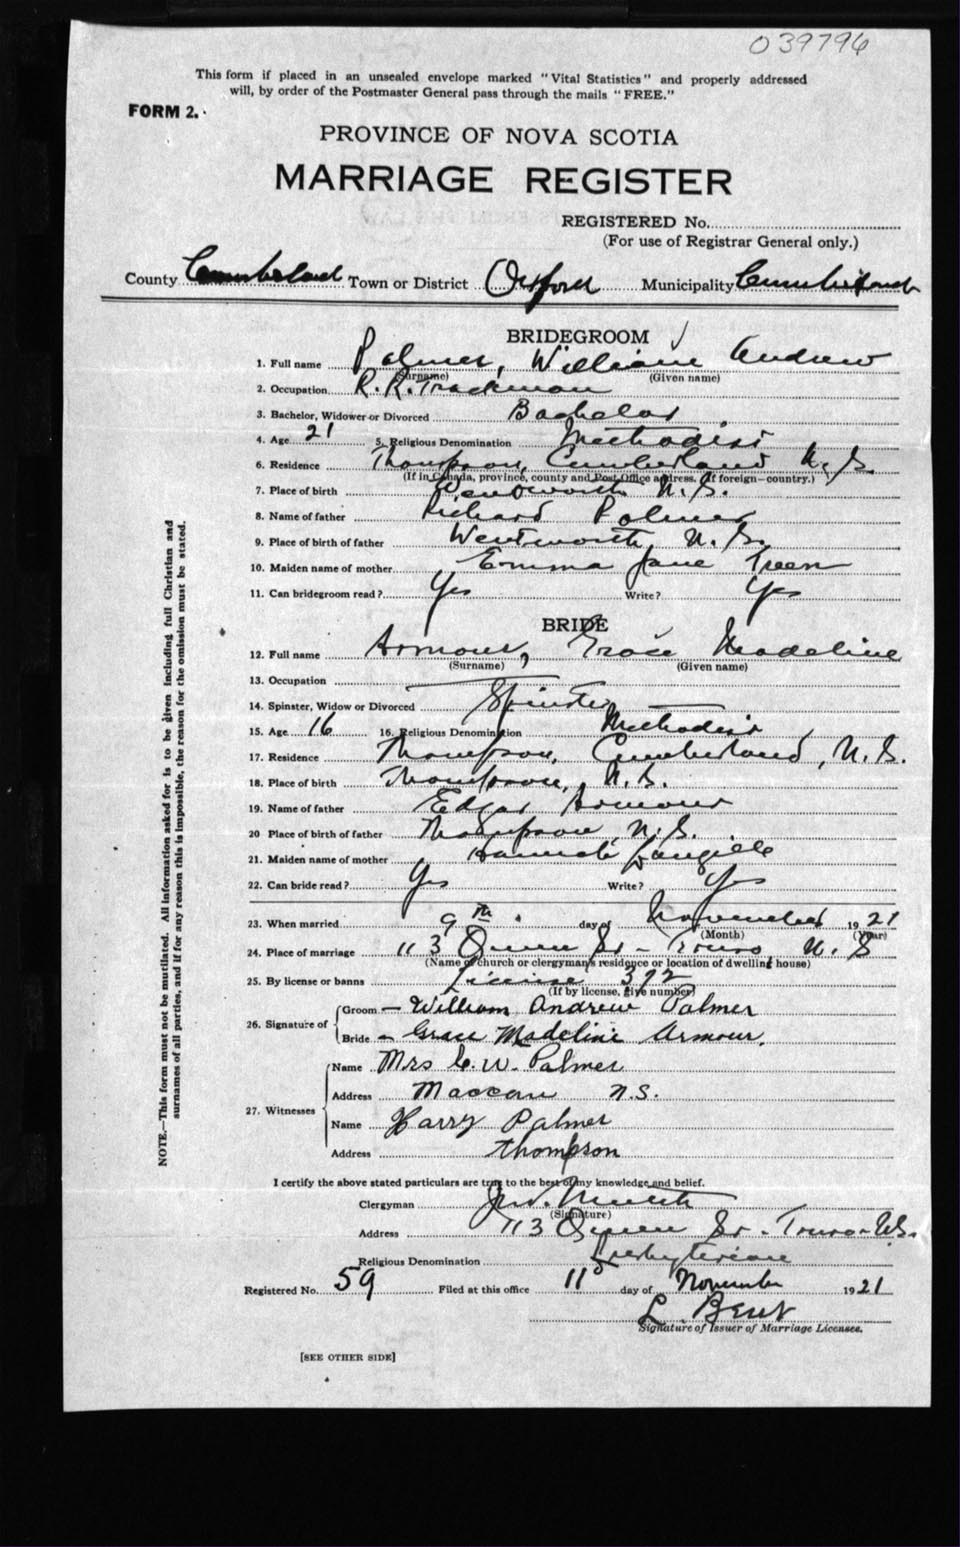 039796
This form if placed in an unsealed envelope marked "Vital Statistics" and properly addressed
will, by order of the Postmaster General pass through the mails "FREE."
FORM 2.
PROVINCE OF NOVA SCOTIA
MARRIAGE REGISTER
REGISTERED No.
(For use of Registrar General only.)
County Cumberland Town or District Oxford Municipality Cumberland
BRIDEGROOM
1. Full name Palmer, William Andrew
(Surname) (Given name)
2. Occupation R. R. Trackman
3. Bachelor, Widower or Divorced Bachelor
4. Age 21 5. Religious Denomination Methodist
6. Residence Thompson, Cumberland N.S.
(If in Canada, province, county and Post Office address. If foreign—country.)
7. Place of birth Wentworth N.S.
8. Name of father Richard Palmer
9. Place of birth of father Wentworth, N.S.
10. Maiden name of mother Emma Jane Treen
11. Can bridegroom read? Yes Write? Yes
BRIDE
12. Full name Armour, Grace Madeline
(Surname) (Given name)
13. Occupation
14. Spinster, Widow or Divorced Spinster
15. Age 16 16. Religious Denomination Methodist
17. Residence Thompson, Cumberland, N.S.
18. Place of birth Thompson, N.S.
19. Name of father Edgar Armour
20 Place of birth of father Thompson, N.S.
21. Maiden name of mother Hannah Langille
22. Can bride read? Yes Write? Yes
23. When married 9th day of November 1921
(Month) (Year)
24. Place of marriage 113 Queen St - Truro N.S
(Name of church or clergyman's residence or location of dwelling house)
25. By license or banns License 392
(If by license, give number)
26. Signature of Groom - William Andrew Palmer
Bride - Grace Madeline Armour.
27. Witnesses Name Mrs C. W. Palmer
Address Maccan N.S.
Name Harry Palmer
Address Thompson
I certify the above stated particulars are true to the best of my knowledge and belief.
Clergyman
(Signature)
Address 113 Queen St. - Truro - N.S.
Religious Denomination Presbyterian
Registered No. 59 Filed at this office 11 day of November 1921
L. Bent
Signature of Issuer of Marriage Licenses.
[SEE OTHER SIDE]
NOTE.—This form must not be mutilated. All information asked for is to be given including full Christian and
surnames of all parties, and if for any reason this is impossible, the reason for the omission must be stated.